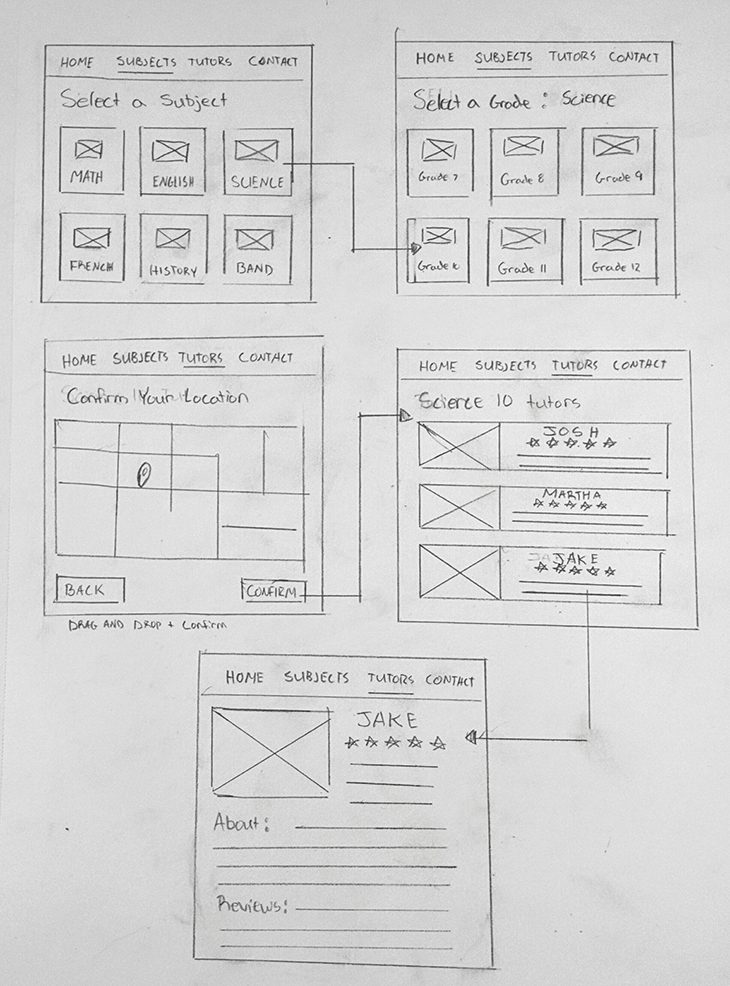 HOME SUBJECTS TUTORS CONTACT
Select a Subject
MATH ENGLISH SCIENCE
FRENCH HISTORY BAND
HOME SUBJECTS TUTORS CONTACT
Select a Grade : Science
Grade 7 Grade 8 Grade 9
Grade 10 Grade 11 Grade 12
HOME SUBJECTS TUTORS CONTACT
Confirm Your Location
BACK CONFIRM
DRAG AND DROP + Confirm
HOME SUBJECTS TUTORS CONTACT
Science 10 tutors
JOSH
MARTHA
JAKE
HOME SUBJECTS TUTORS CONTACT
JAKE
About:
Reviews: